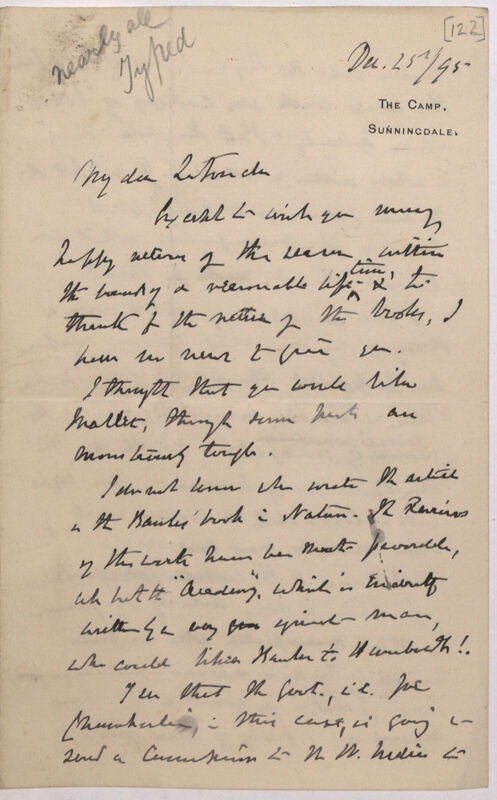 [122]
nearly all
Typed
Dec. 25th/95
THE CAMP,
SUNNINGDALE.
My dear La Touche
Except to wish you many
happy returns of the season within
the bounds of a reasonable life time, & to
thank for the notice of the books, I
have no news to give you.
I thought that you would like
Mallet, though some parts are
monstrously tough.
I do not know who wrote the article
on the Banks' book in Nature. The Reviews
of this work have been most favorable,
all but the "Academy", which is evidently
written by a very ignorant man,
who could liken Banks to Humboldt!.
I see that the Govt., i.e. Joe
Chamberlain, in this case, is going to
send a Commission to the W. Indies to